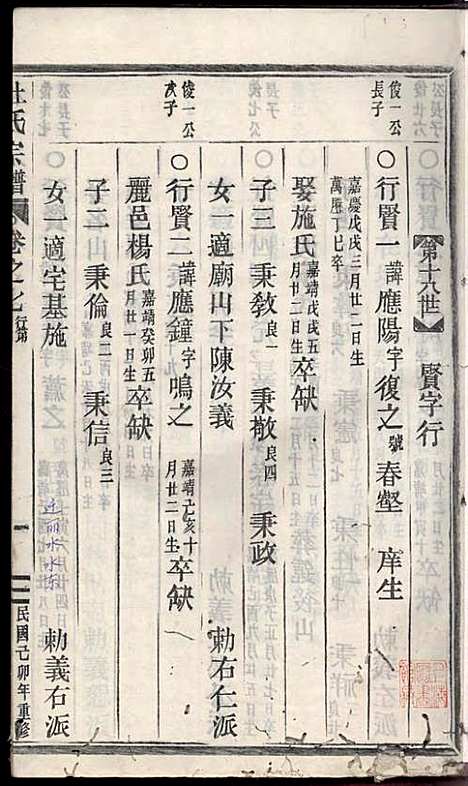 第十八世 賢字行
俊一公長子
○行賢一諱應陽字復之號春壑 庠生
嘉慶戊戌三月廿二日生
萬曆丁巳卒
娶施氏嘉靖戊戌五月廿二日生卒缺
子三 秉敎良一 秉㪚良四 秉政
女一適廟山下陳汝義 勅右仁派
俊一公次子
○行賢二諱應鐘字鳴之嘉靖乙亥十月廿二日生卒缺
麗邑楊氏嘉靖癸卯五月廿一日生卒缺
子二山 秉倫良二 秉信良三
女一適宅基施 勅義右派
杜氏宗譜 卷之七 行第 一 民國己卯年重修